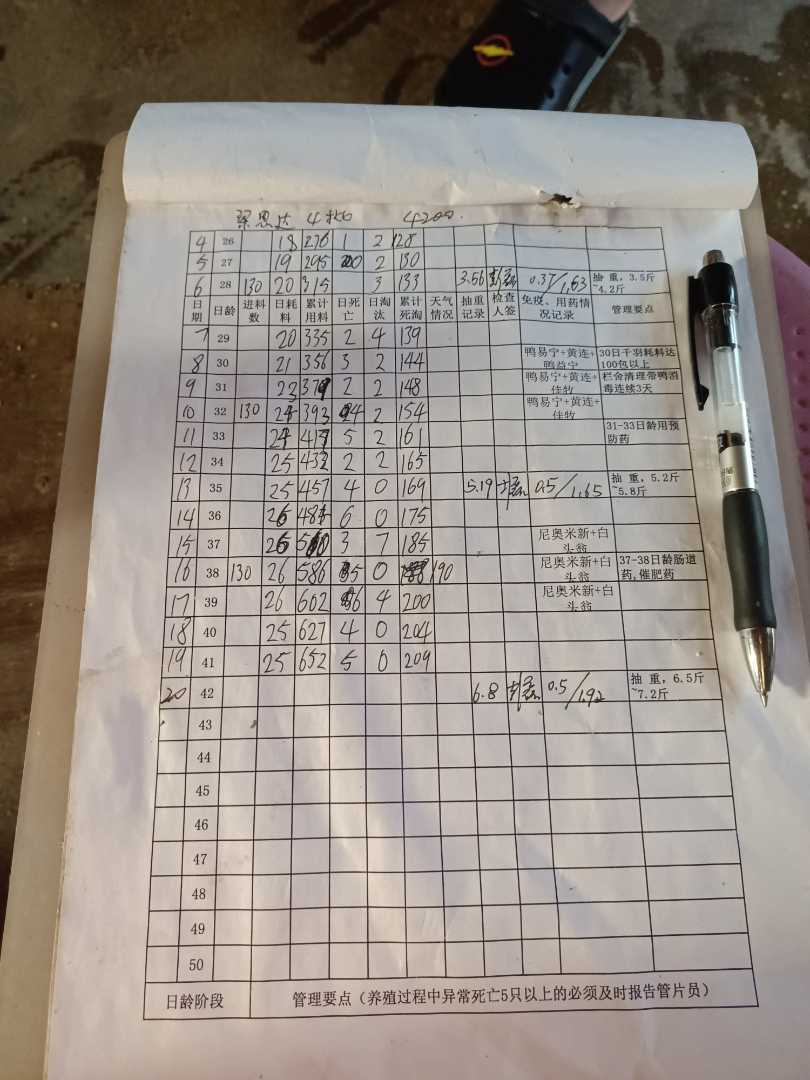 4200.
4 26 18 276 1 2 128
5 27 19 295 2 130
6 28 130 20 315 3 133 3.56 0.37/1.63 抽 重，3.5斤~4.2斤
日期 日龄 进料数 日耗料 累计用料 日死亡 日淘汰 累计死淘 天气情况 抽重记录 检查人签 免疫、用药情况记录 管理要点
7 29 20 335 2 4 139
8 30 21 356 3 2 144 鸭易宁+黄连+鸭益宁 30日千羽耗料达100包以上
9 31 23 379 2 2 148 鸭易宁+黄连+佳牧 栏舍清理带鸭消毒连续3天
10 32 130 393 4 2 154 鸭易宁+黄连+佳牧
11 33 24 417 5 2 161 31-33日龄用预防药
12 34 25 432 2 2 165
13 35 25 457 4 0 169 5.19 0.5/1.65 抽 重，5.2斤~5.8斤
14 36 26 483 6 0 175
15 37 26 3 7 185 尼奥米新+白头翁
16 38 130 26 586 5 0 190 尼奥米新+白头翁 37-38日龄肠道药,催肥药
17 39 26 602 6 4 200 尼奥米新+白头翁
18 40 25 627 4 0 204
19 41 25 652 5 0 209
20 42 6.8 0.5/1.92 抽 重，6.5斤~7.2斤
43
44
45
46
47
48
49
50
日龄阶段 管理要点（养殖过程中异常死亡5只以上的必须及时报告管片员）